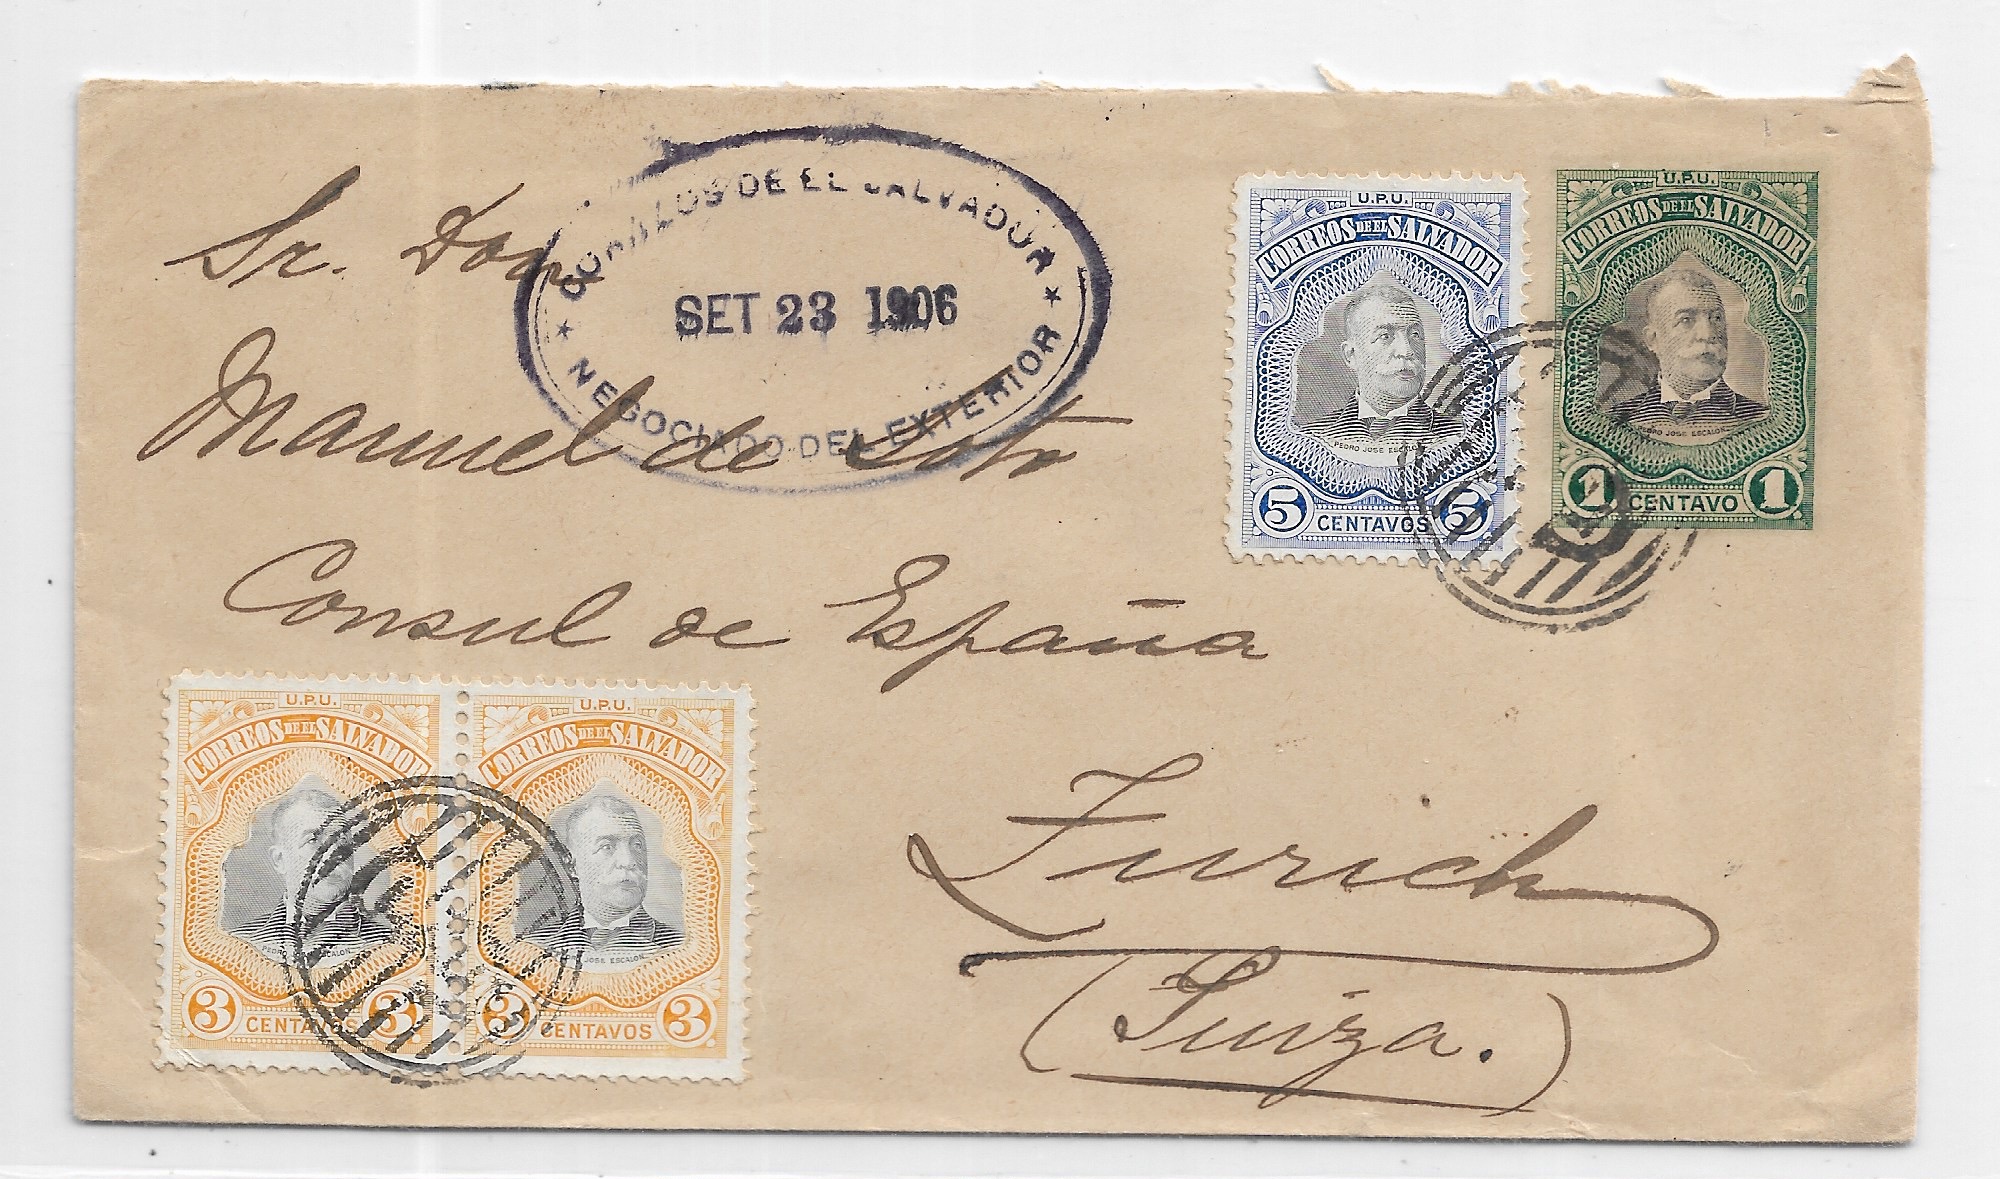 CORREOS DE EL SALVADOR
SET 23 1906
NEGOCIADO DEL EXTERIOR
U.P.U.
CORREOS DE EL SALVADOR
PEDRO JOSE ESCALON
5 CENTAVOS 5
U.P.U.
CORREOS DE EL SALVADOR
PEDRO JOSE ESCALON
1 CENTAVO 1
Sr. Don
Manuel de Soto
Consul de España
Zurich
(Suiza.)
U.P.U.
CORREOS DE EL SALVADOR
PEDRO JOSE ESCALON
3 CENTAVOS 3
U.P.U.
CORREOS DE EL SALVADOR
PEDRO JOSE ESCALON
3 CENTAVOS 3